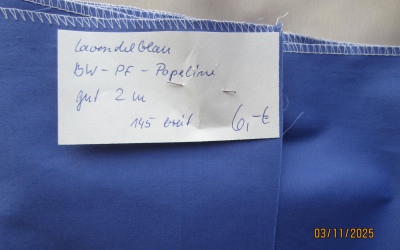 lavendelblau
BW-PF-Popeline
gut 2 m
145 breit 6,-€
03/11/2025